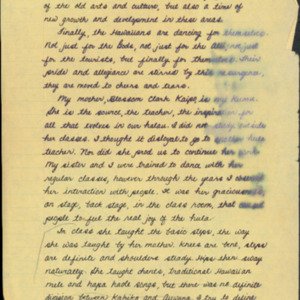 of the old arts and culture, but also a time of
new growth and development in these areas.
Finally, the Hawaiians are dancing for themselves.
Not just for the Gods, not just for the Alii, not just
for the tourists, but finally for themselves. Their
pride and allegiance are stirred by this resurgence,
they are moved to cheers and tears.
My mother, Blossom Clark Kaipo, is my Kumu.
She is the source, the teacher, the inspiration for
all that evolves in our halau. I did not study outside
her classes. I thought it disloyal to go to another hula
teacher. Nor did she push us to continue her
My sister and I were trained to dance with her
regular classes, however through the years I
her interaction with people. It was her graciousness,
on stage, back stage, in the class room, that
people to feel the real joy of the hula.
In class she taught the basic steps, the way
she was taught by her mother. Knees are bent, steps
are definite and shoulders steady. Hips then sway
naturally. She taught chants, traditional Hawaiian
mele and hapa haole songs, but there was no definite
division between Kahiko and Auwana. I try to